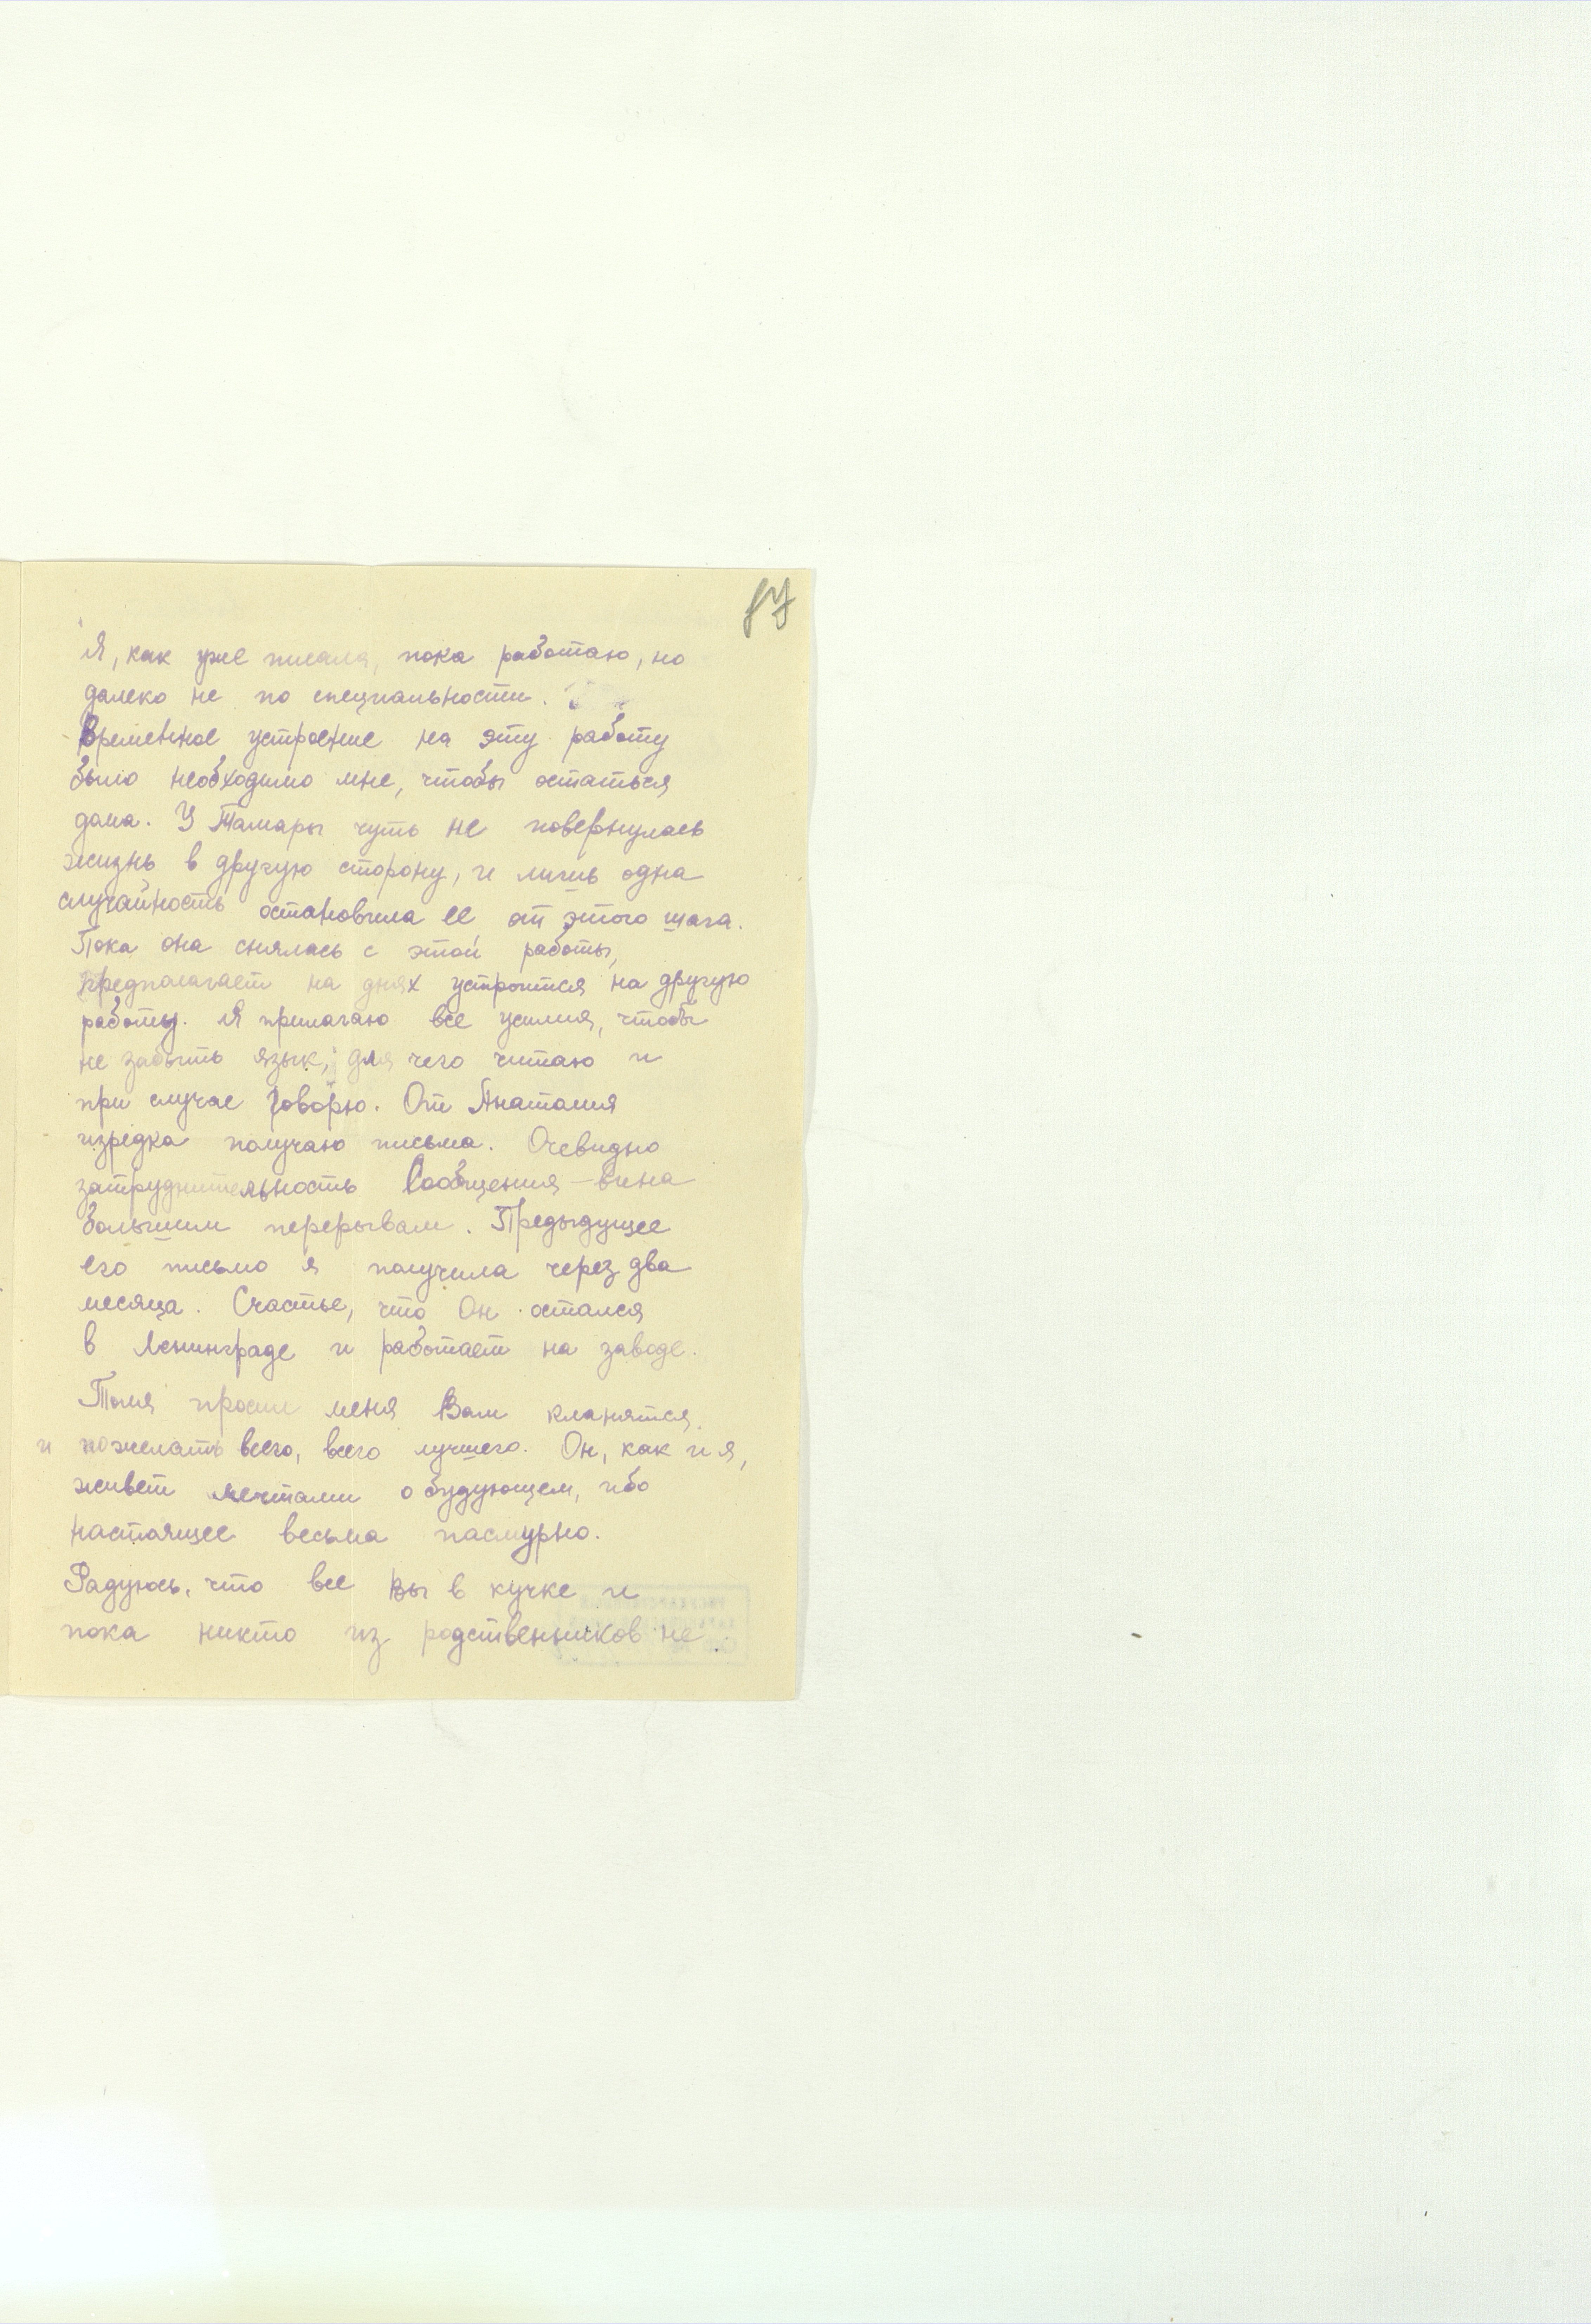 87
Я, как уже писала, пока работаю, но
далеко не по специальности.
Временное устроение на эту работу
было необходимо мне, чтобы остаться
дома. У Тамары чуть не повернулась
жизнь в другую сторону, и лишь одна
случайность остановила ее от этого шага.
Пока она снялась с этой работы,
предполагает на днях устроится на другую
работу. Я прилагаю все усилия, чтобы
не забыть язык, для чего читаю и
при случае говорю. От Анатолия
изредка получаю письма. Очевидно
затруднительность сообщения – вина
большим перерывам. Предыдущее
его письмо я получила через два
месяца. Счастье, что он остался
в Ленинграде и работает на заводе.
Толя просил меня Вам кланятся
и пожелать всего, всего лучшего. Он, как и я,
живет мечтами о будующем, ибо
настоящее весьма пасмурно.
Радуюсь, что все Вы в кучке и
пока никто из родственников не